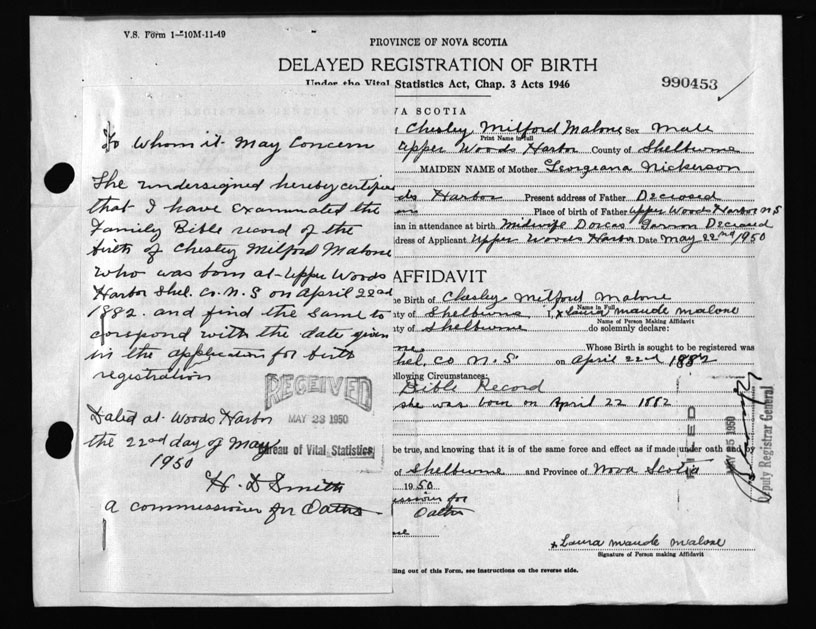 V.S. Form 1-10M-11-49
PROVINCE OF NOVA SCOTIA
DELAYED REGISTRATION OF BIRTH
Under the Vital Statistics Act, Chap. 3 Acts 1946
990453
To Whom it May Concern
The undersigned hereby certifies
that I have examinated the
Family Bible record of the
birth of Chesley Milford Malone
who was born at Upper Woods
Harbor Shel. Co. N.S on April 22nd
1882. and find the same to
correspond with the date given
in the application for birth
registration
RECEIVED
MAY 23 1950
Bureau of Vital Statistics
Dated at Woods Harbor
the 22nd day of May
1950
H. D Smith
a commissioner for Oaths
VA SCOTIA
Chesley Milford Malone Sex Male
Print Name in full
Upper Woods Harbor County of Shelburne
MAIDEN NAME of Mother Georgeana Nickerson
ds Harbor Present address of Father Deceased
Place of birth of Father Upper Woods Harbor N S
ian in attendance at birth Midwife Dorcas Deceased
dress of Applicant Upper Woods Harbor Date May 22nd 1950
AFFIDAVIT
e Birth of Chesley Milford Malone
Name in Full
ty of Shelburne I, x Laura maude malone
Name of Person Making Affidavit
ty of Shelburne do solemnly declare:
Whose Birth is sought to be registered was
hel, Co N.S. on April 22nd 1882
llowing Circumstances:
Bible Record
she was born on April 22 1882
be true, and knowing that it is of the same force and effect as if made under oath and
of Shelburne and Province of Nova Scotia
1950
issioner for
Oaths
x Laura maude malone
Signature of Person making Affidavit
lling out of this Form, see instructions on the reverse side.
FILED
MAY 25 1950
Deputy Registrar General